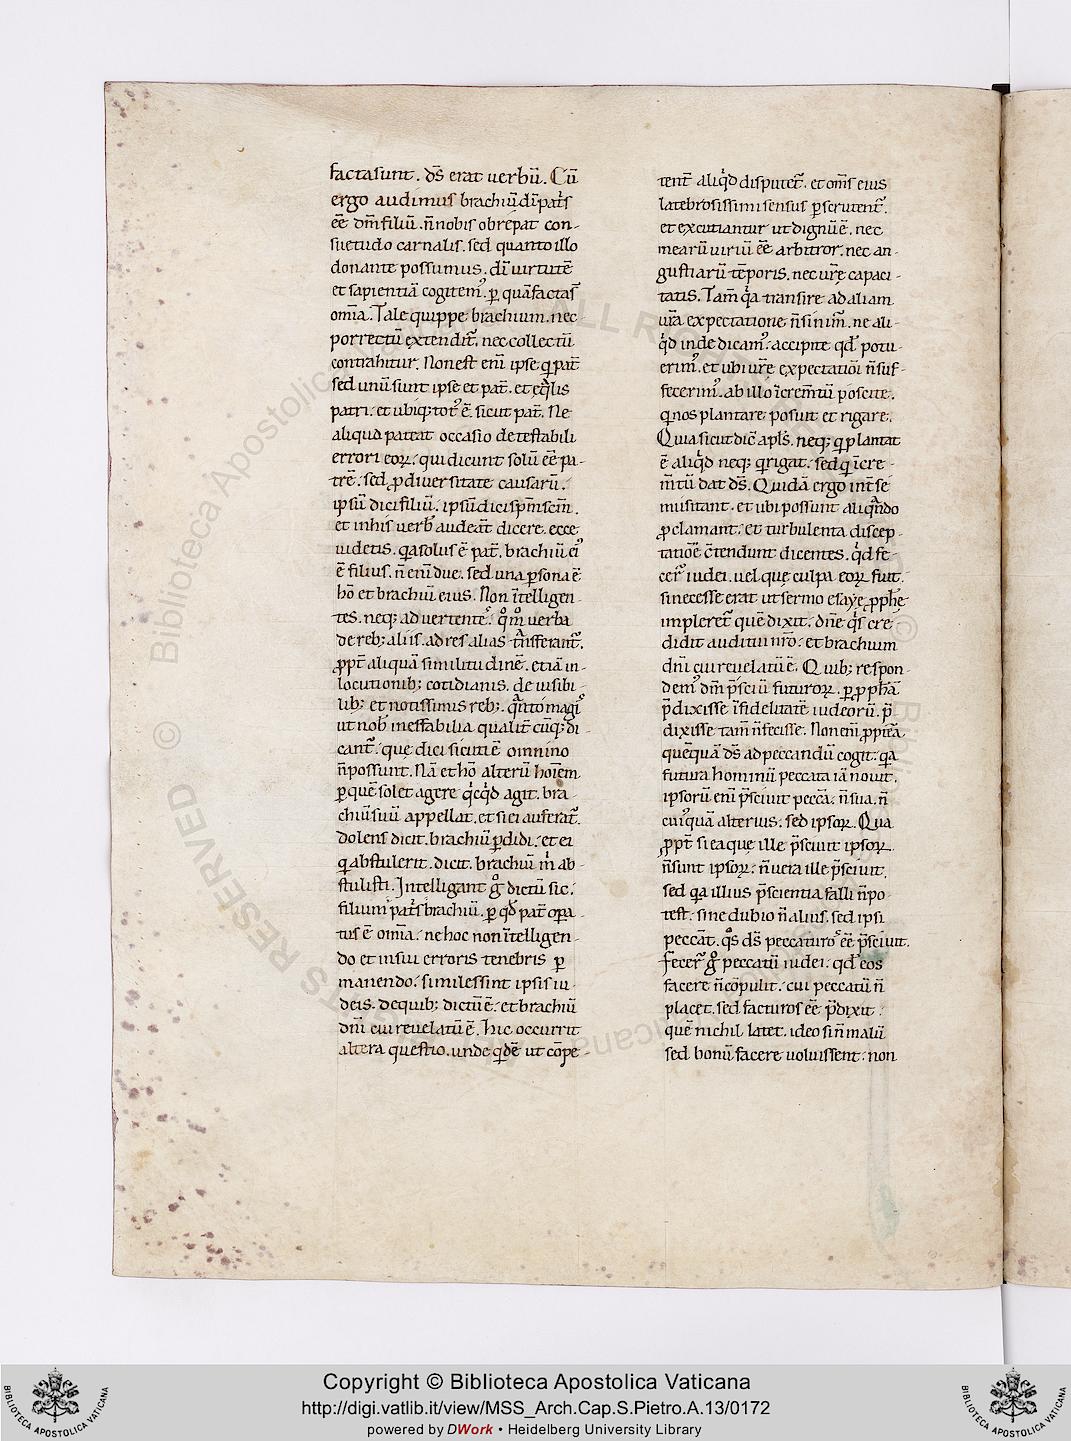 factasunt. ds̄ erat uerbū. Cū
ergo audimus brachiū dn̄i patˢ
eē dn̄m filiū. n̄ nobis obrepat con-
suetudo carnalis. sed quanto illo
donante possumus. dī uirtutē
et sapientiā cogitem᾽. p̱ quā factasˉ
om̄ia. Tale quippe brachium. nec
porrectū extendit᷑. nec collectū
contrahitur. Non est eni̅ ipse qͥ pat̄
sed unū sunt ipse et pat̄. et eqᷓlis
patri. et ubiq; tot᾽ ē. sicut pat̄. Ne
aliquid pateat occasio detestabili
errori eoꝝ. qui dicunt solū eē pa-
trē. sed ꝓ diuersitate causarū.
ipsū dici filiū. ipsū dici sp̄m sc̄m.
et in his uerb̄ audeāt dicere. ecce
uidetis. qͥa solus ē pat̄. brachiū ei᾽
ē filius. n̄ eni̅ due. sed una persona ē
hō et brachiū eius. Non ītelligen-
tes. neq; aduertentes. qͦmͦ uerba
de reb; aliis. ad res alias tᷓnsferant᷑.
ꝓpt̄ aliquā similitudinē. etiā in
locutionib; cotidianis. de uisibi-
lib; et notissimis reb;. qᷓnto magi᾽
ut nob̄ ineffabilia qualit̄ cūq; di-
cant᷑. que dici sicuti ē omnino
n̄ possunt. Nā et hō alterū hoīem
p̱ quē solet agere qͥcqͥd agit. bra-
chiū suū appellat. et si ei auferat᷑.
dolens dicit. brachiū p̱didi. et ei
qͥ abstulerit. dicit. brachiū mͥ ab-
stulisti. Intelligant gͦ dictū sic.
filium patˢ brachiū. p̱ qd̄ pat̄ opa̱-
tus ē om̄ia. ne hoc non ītelligen-
do et in sui erroris tenebris p̱
manendo. similes sint ipsis iu-
deis. de quib; dictū ē. et brachiū
dn̄i cui reuelatū ē. hic occurrit
altera questio. unde qͥdē ut cōpe-
tent̄ aliqͥd disputet᷑. et om̄s eius
latebrosissimi sensus p̱scrutent᷑.
et excutiantur ut dignū ē. nec
mearū uiriū eē arbitror. nec an-
gustiarū tēporis. nec ur̄e capaci-
tatis. Tam̄ qͥa transire ad aliam
ur̄a expectatione n̄ sinim᾽. ne ali-
qͥd inde dicam᾽. accipite qd̄ potu-
erim᾽. et ubi ur̄e expectatiōi n̄ suf-
fecerim᾽. ab illo īcrem̄tū poscite.
qͥ nos plantare posuit et rigare.
Quia sicut dic̄ apl̄s. neq; qͥ plantat
ē aliqͥd neq; qͥ rigat. sed qͥ īcre-
m̄tū dat ds̄. Quidā ergo int̄ se
musitant. et ubi possunt aliqᷓndo
ꝓclamant. et turbulenta discep-
tatiōe c̄tendunt dicentes. qͥd fe-
cer̄ iudei. uel que culpa eoꝝ fuit.
si necesse erat ut sermo esaye ꝓphe
impleret᷑ quē dixit. dn̄e qͥs cre-
didit auditui nr̄o. et brachium
dn̄i cui reuelatū ē. Quib; respon-
dem᾽ dn̄m p̄sciū futuroꝝ. p̱ ꝓph̄ā
p̄dixisse īfidelitatē iudeorū. p̄
dixisse tam̄ n̄ fecisse. Non eni̅ ꝓpt̄ea
quēquā ds̄ ad peccandū cogit. qͥa
futura hominū peccata iā nouit.
ipsorū eni̅ p̄sciuit peccā. n̄ sua. n̄
cui᾽quā alterius. sed ipsoꝝ. Qua
ꝓpt̄ si ea que ille p̄sciuit ipsoꝝ.
n̄ sunt ipsoꝝ. n̄ uera ille p̄sciuit.
sed qͥa illius p̄scientia falli n̄ po-
test. sine dubio n̄ alius. sed ipsi
peccāt. qͦs ds̄ peccaturos eē p̄sciuit.
fecer̄ gͦ peccatū iudei. qd̄ eos
facere n̄ cōpulit. cui peccatū n̄
placet. sed facturos eē p̄dixit.
quē nichil latet. ideo si n̄ malū
sed bonū facere uoluissent. non
© Biblioteca Apostolica Vaticana ALL RIGHTS RESERVED
Copyright © Biblioteca Apostolica Vaticana
http://digi.vatlib.it/view/MSS_Arch.Cap.S.Pietro.A.13/0172
powered by DWork • Heidelberg University Library
BIBLIOTECA APOSTOLICA VATICANA
BIBLIOTECA APOSTOLICA VATICANA